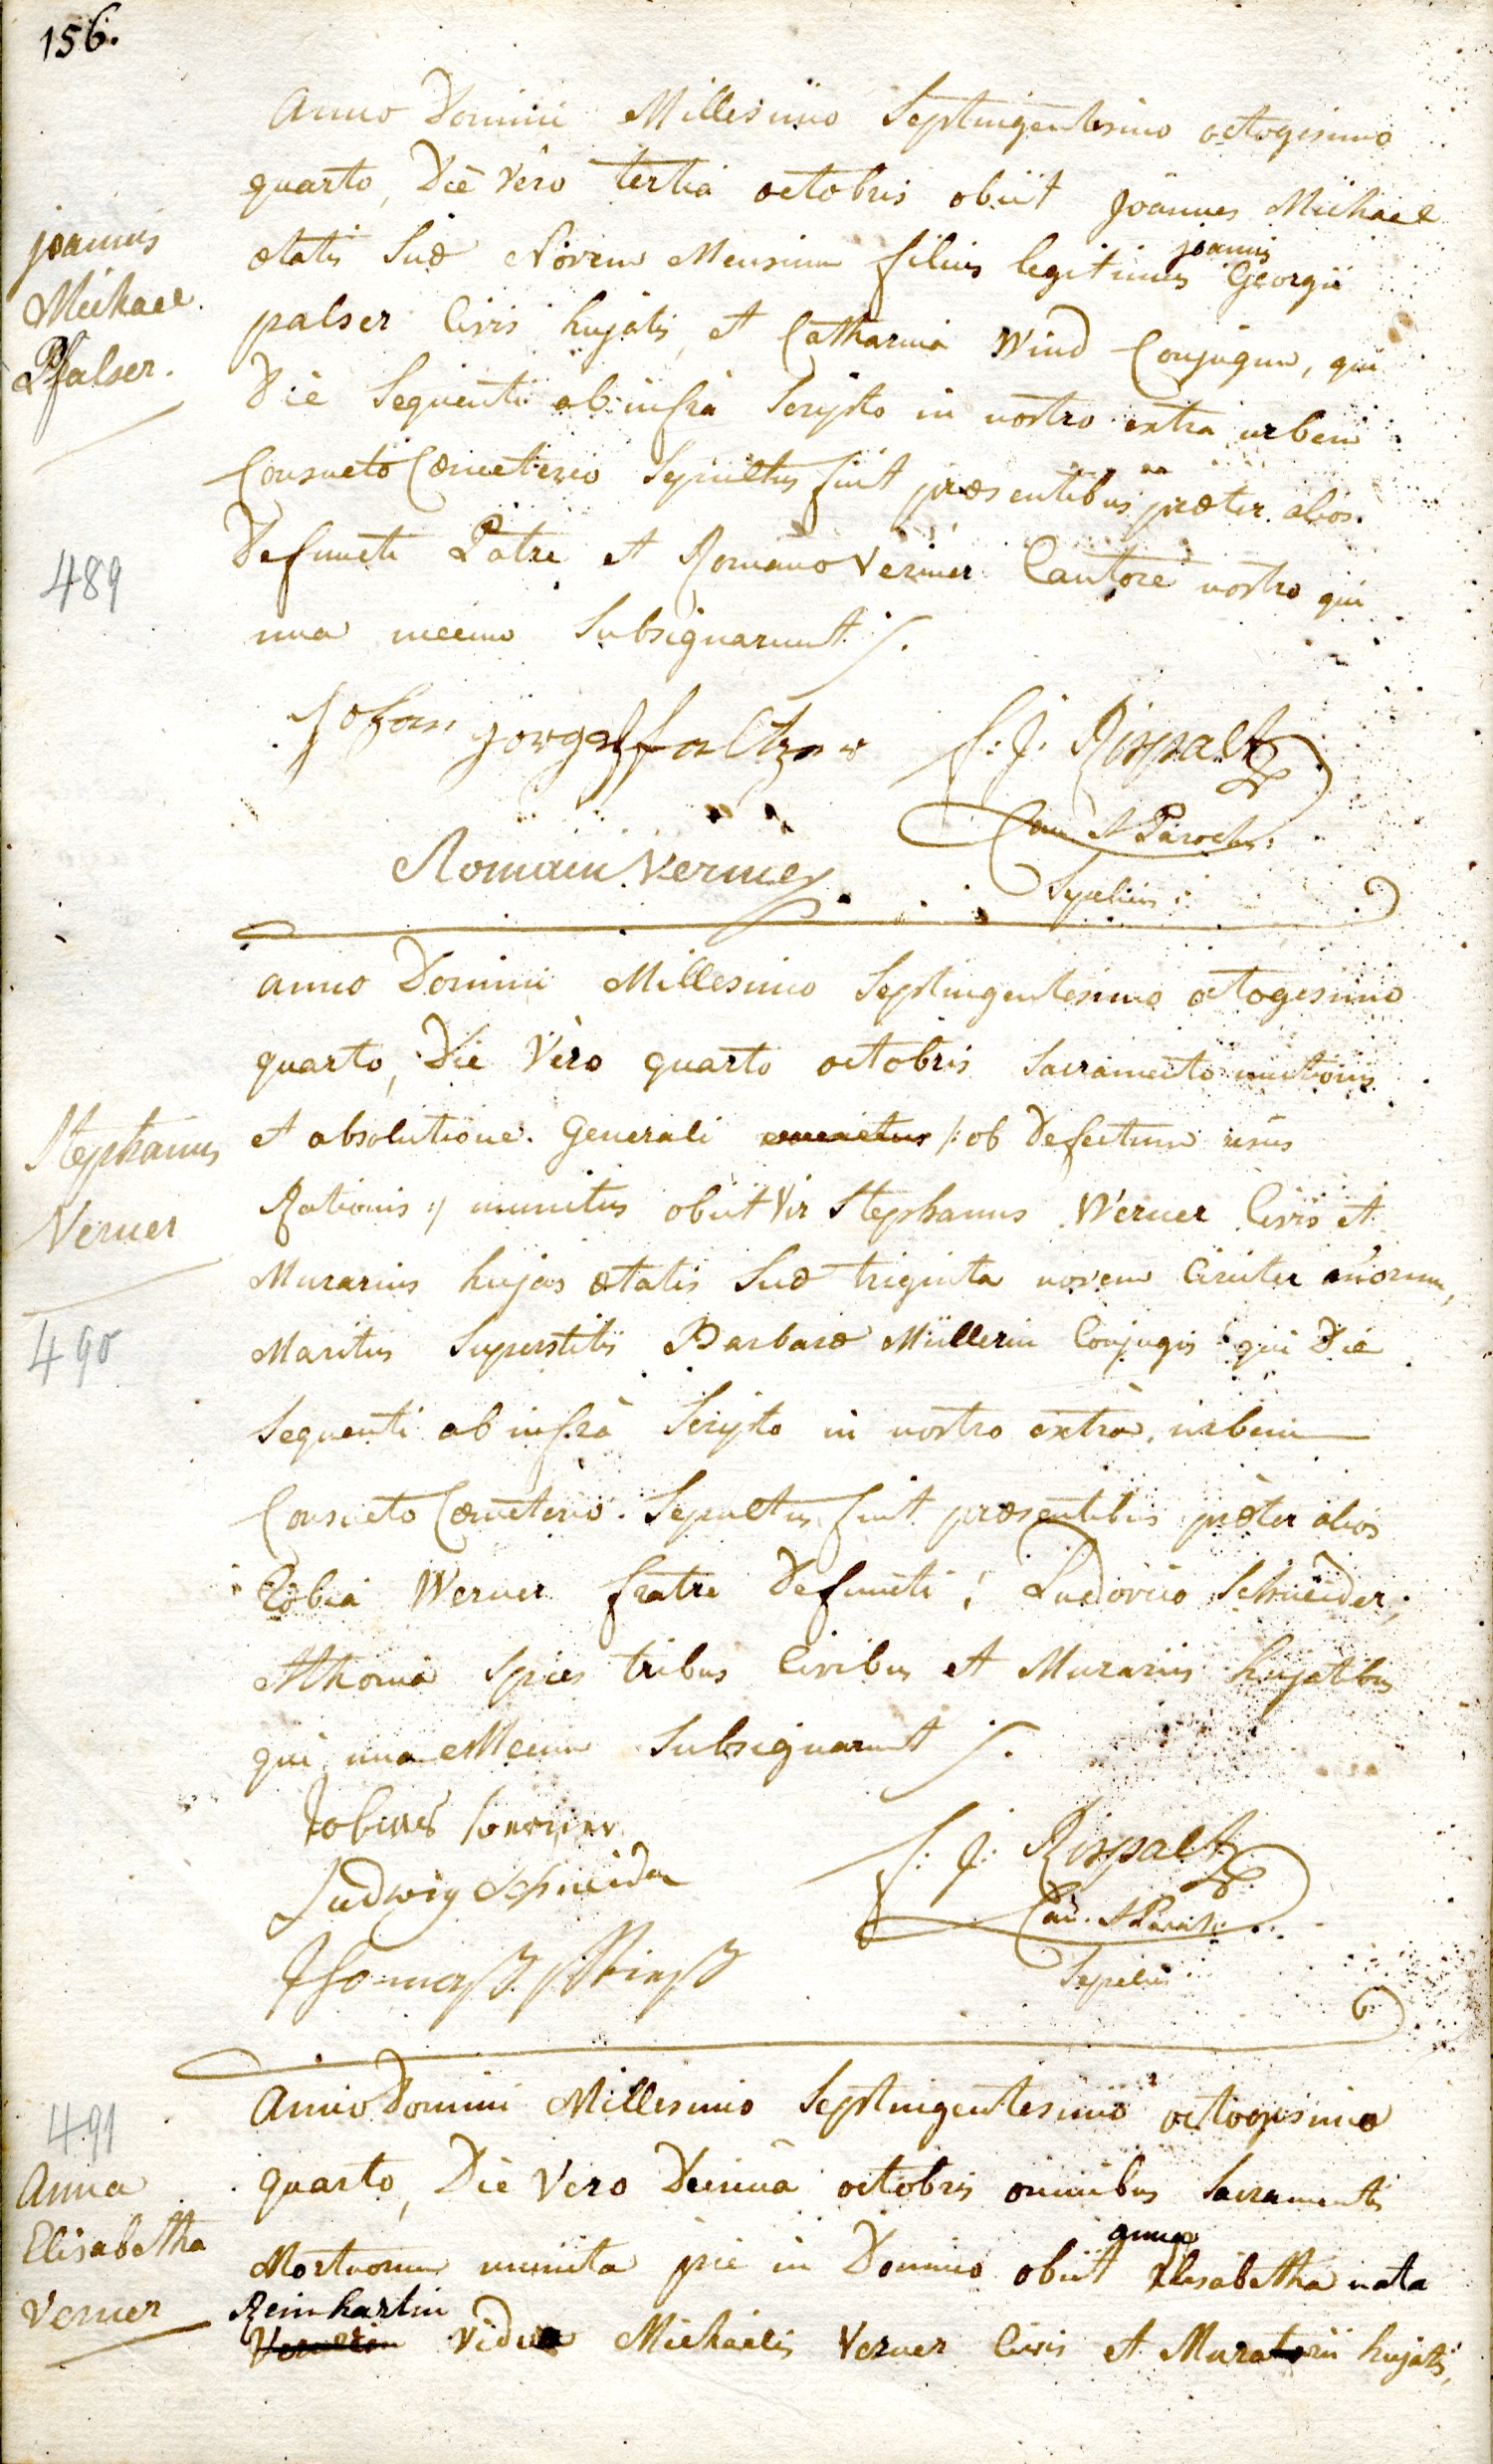 156.
Anno Domini Millesimo Septingentesimo octogesimo
quarto, Die vero tertia octobris obiit Joannes Michael
joannis
ætatis suæ Novem Mensium filius legitimus Georgii
palser Civis hujatis, et Catharina Wind Conjugum, qui
Die Sequenti ab infrà Scripto in nostro extra urbem
Consueto Cœmeterio Sepultus fuit præsentibus præter alios
Defuncti Patre et Romano Verner Cantore nostro qui
una mecum Subsignarunt ./.
joannes
Michael
Pfalser.
489
Johan jorg Pfaltzer
F: J: Rispalt
Can et Parochus:
Romain Verner
Sepeliens:
anno Domini Millesimo Septingentesimo octogesimo
quarto, Die Vero quarto octobris Sacramento unctionis
et absolutione Generali /: ob Defectum usus
Rationis :/ munitus obiit Vir Stephanus Werner Civis et
Murarius hujas ætatis Suæ triginta novem Circiter añorum,
Maritus Superstitis Barbaræ Müllerin Conjugis qui Die
Sequenti ab infrà Scripto in nostro extrà urbem
Consueto Cœmeterio Sepultus fuit præsentibus præter alios
Tobia Werner fratre Defuncti; Ludovico Schneider;
et Thoma Spies tribus Civibus et Murariis hujatibus
qui una Mecum Subsignarunt ./.
Stephanus
Verner
490
Tobias werner
Ludwig Schneider
Thomaß spieß
F: J: Rispalt
Can. et Paroch:
Sepeliens
Anno Domini Millesimo Septingentesimo octogesimo
quarto, Die Vero Decima octobris omnibus Sacramentis
anna
Mortuorum munita pie in Domino obiit Elisabetha nata
Reinhartin
Vernerin Vidua Michaelis Verner Civis et Muratorii hujatis,
491
Anna
Elisabetha
Verner